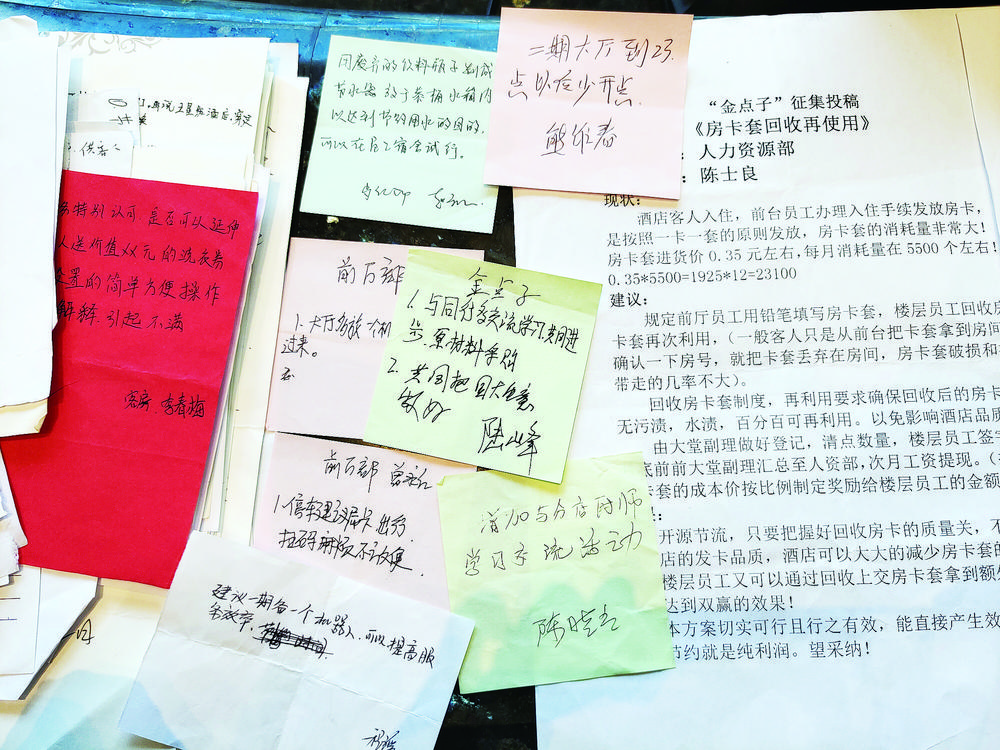 再说五星级酒店,肯定
供客
特别认可,是否可以延伸
人送价值XX元的洗衣券
设置的简单方便操作
解释,引起不满
客房:李春梅
用废弃的饮料瓶子制成
节水器放于马桶水箱内
以达到节约用水的目的,
可以在员工宿舍试行。
二期大厅到23
点以后少开点.
熊维春
前厅部
1.大厅多放个机
过来。
金点子
1.与同行多交流学习共同进
步.原材料采购
2.共同把团大生意
做好
陆山峰
前厅部
1.停车建议房卡出行
扫码麻烦不方便.
增加与分店厨师
学习交流活动
陈晓
建议一期备一个机器人,可以提高服
务效率,
“金点子”征集投稿
《房卡套回收再使用》
:人力资源部
:陈士良
现状:
酒店客人入住,前台员工办理入住手续发放房卡,
是按照一卡一套的原则发放,房卡套的消耗量非常大!
房卡套进货价 0.35 元左右,每月消耗量在 5500 个左右!
0.35*5500=1925*12=23100
建议:
规定前厅员工用铅笔填写房卡套,楼层员工回收房
卡套再次利用,(一般客人只是从前台把卡套拿到房间
确认一下房号,就把卡套丢弃在房间,房卡套破损和
带走的几率不大)。
回收房卡套制度,再利用要求确保回收后的房卡
无污渍,水渍,百分百可再利用。以免影响酒店品质
由大堂副理做好登记,清点数量,楼层员工签字
底前前大堂副理汇总至人资部,次月工资提现。(
卡套的成本价按比例制定奖励给楼层员工的金额
:
开源节流,只要把握好回收房卡的质量关,不
店的发卡品质,酒店可以大大的减少房卡套的
楼层员工又可以通过回收上交房卡套拿到额外
达到双赢的效果!
本方案切实可行且行之有效,能直接产生效
节约就是纯利润。望采纳!